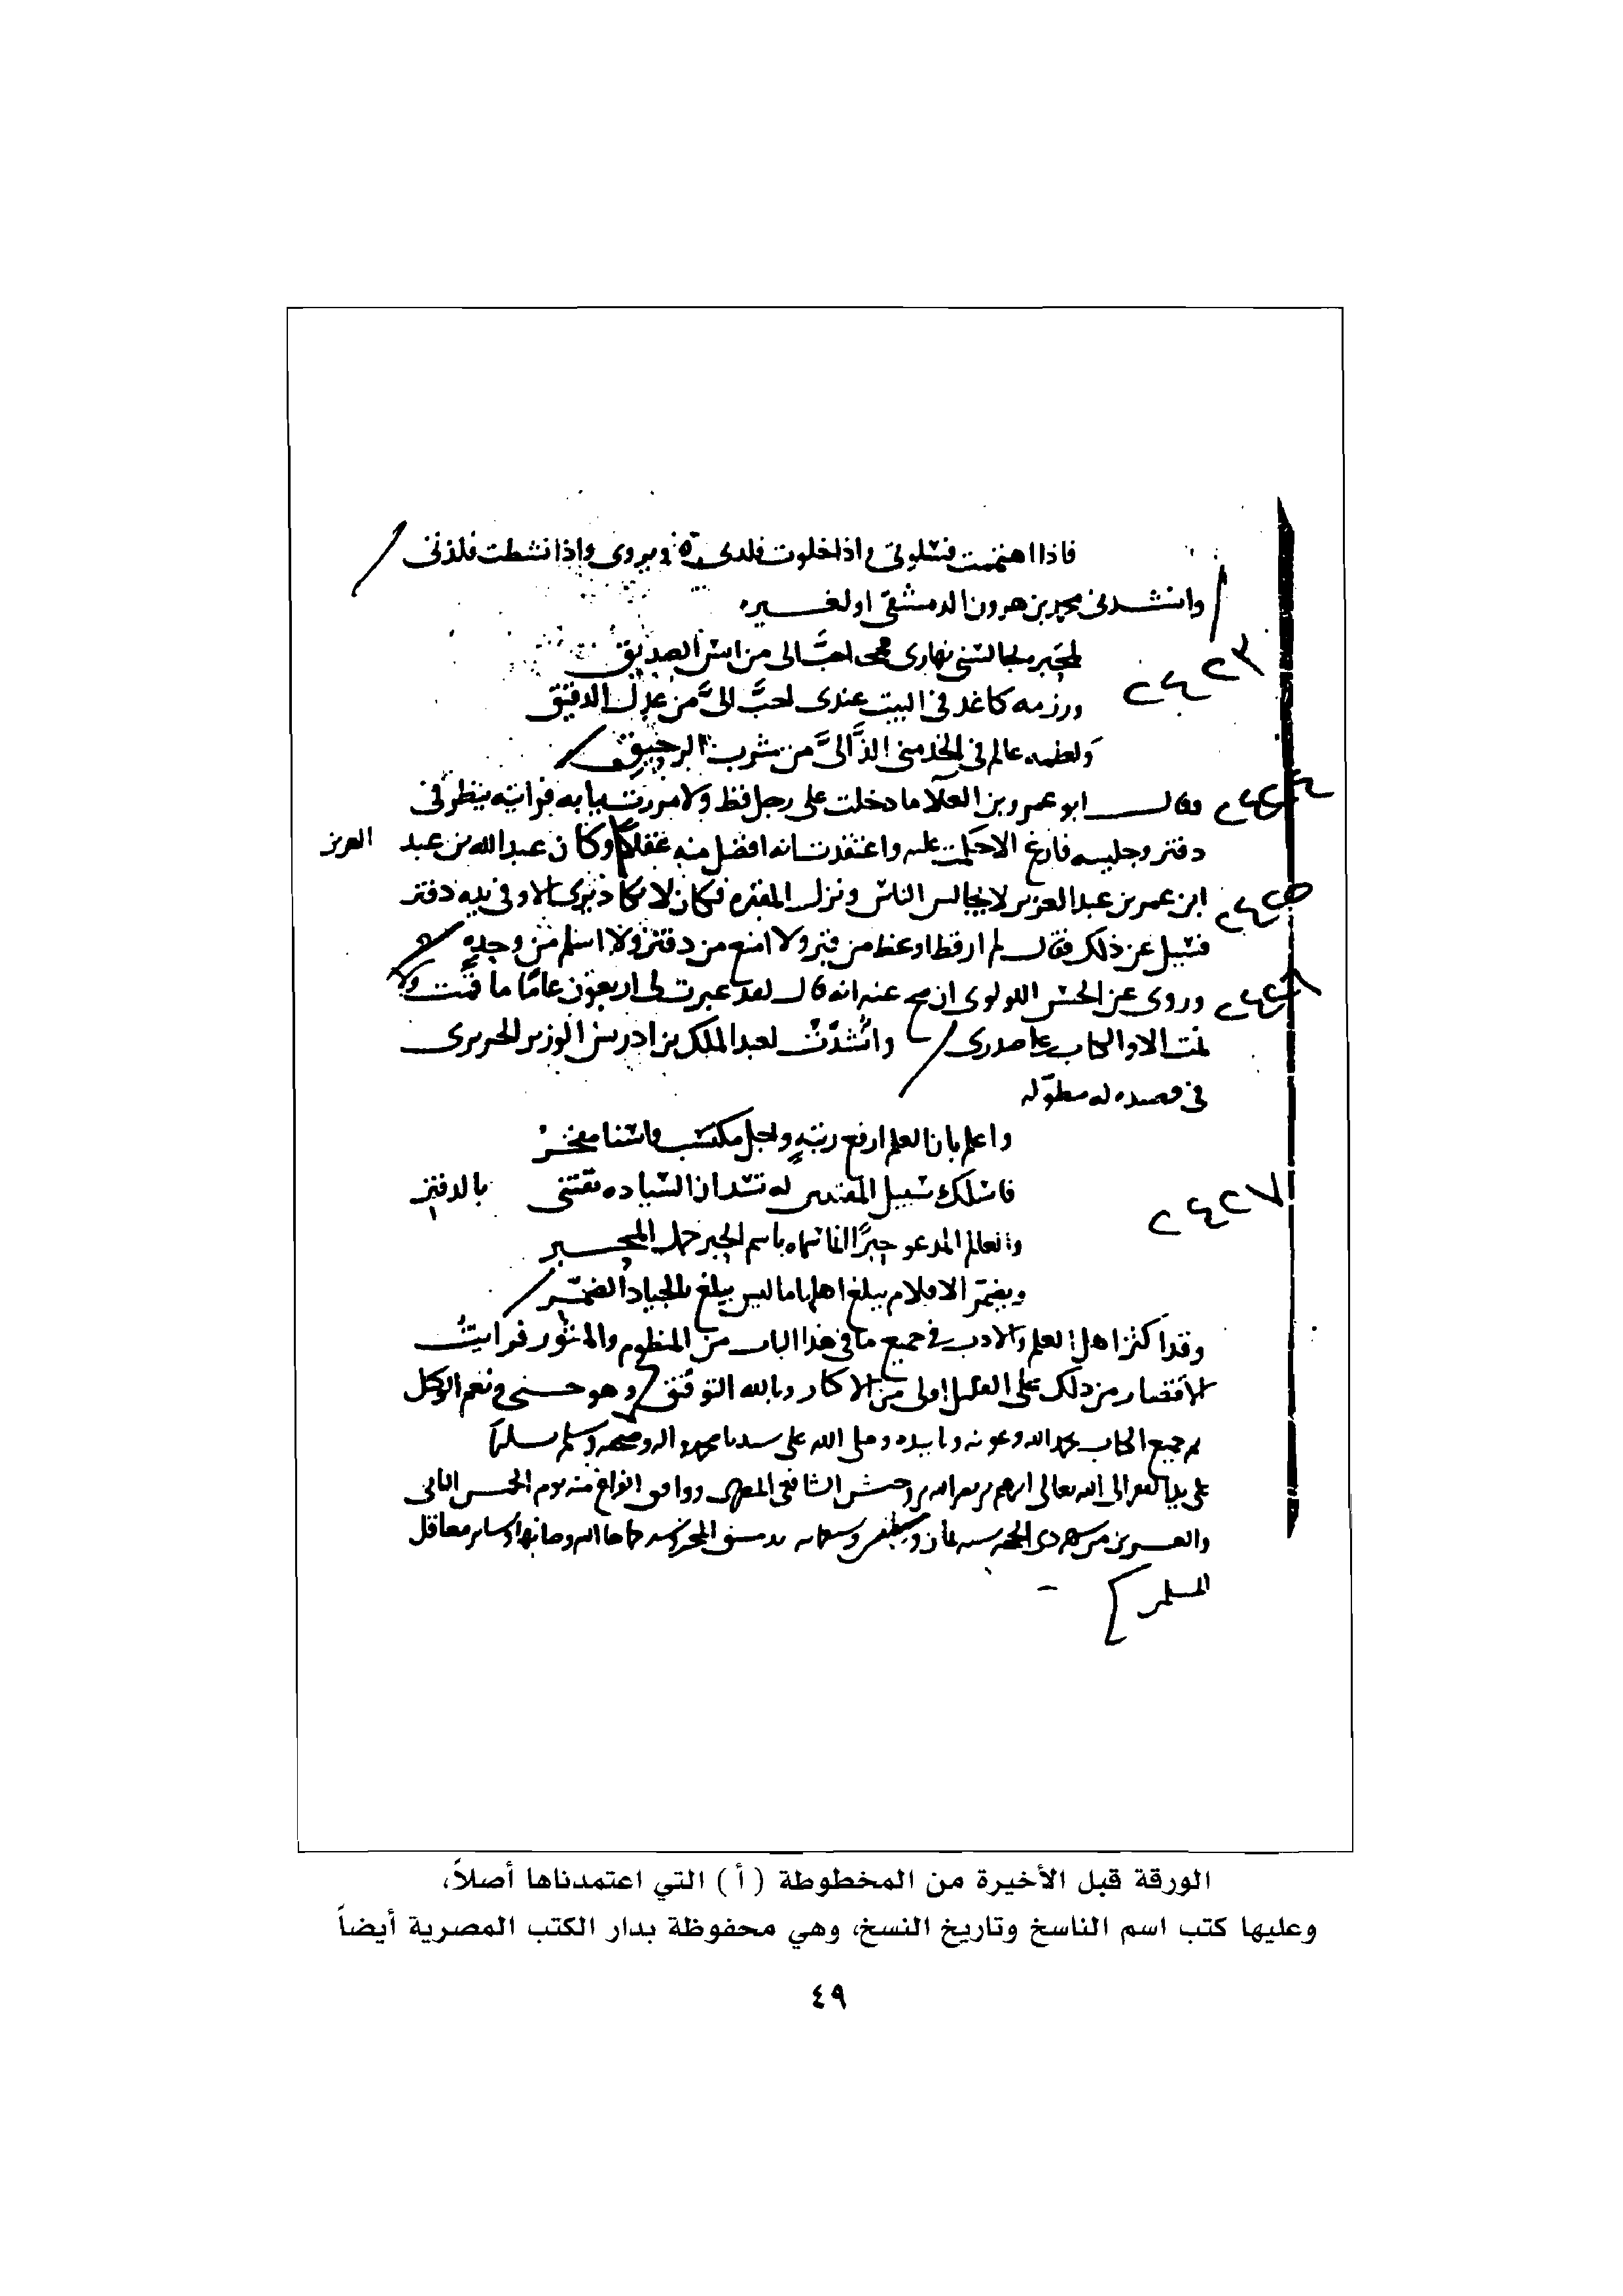 فاذا اهتممت فسلوتى واذا خلوت فلدى ويروى واذا نشطت فلذتى
وانشدنى محمد بن هرون الدمشقى او لغيره
لمحبره مجالستى نهارى احبّ الى من انس الصديق
٢٤٢٣
ورزمه كاغد فى البيت عندى احبّ الىّ من عدل الدقيق
ولطمه عالم فى الخد منى الذّ الىّ من شرب الرحيق
وقال ابو عمرو بن العلا ما دخلت على رجل قط ولا مررت ببابه فرايته ينظر فى
دفتر وجليسه فارغ الا حكمت عليه واعتقدت انه افضل منه عقلا وكان عبد الله بن عبد العزيز
ابن عمر بن عبد العزيز لا يجالس الناس ونزل المقبره فكان لا يكاد يرى الا وفى يده دفتر
٢٤٢٥
فسيل عن ذلك فقال لم ار قط اوعظ من قبر ولا امتع من دفتر ولا اسلم من وحده
وروى عن الحسن اللولوى ان صح عنه انه قال لقد غبرت لى اربعون عاما ما قلت ولا
نمت الا والكتاب على صدرى وانشدت لعبد الملك بن ادريس الوزير الحريرى
فى قصيده له مطوّله
واعلم بان العلم ارفع رتبةٍ واجل مكتسب واسنا مفخر
فاسلك سبيل المقتنين له تسد ان السياده تقتنى بالدفتر
٢٤٢٧
والعالم المدعو حبرًا انما سماه باسم الحبر حمل المحبر
وبضمّر الاقلام يبلغ اهلها ما ليس يبلغ بالجياد الضمّر
وقد اكثر اهل العلم والادب فى جميع ما فى هذا الباب من المنظوم والمنثور فرايت
الاقتصار من ذلك على القليل اولى من الاكثار وبالله التوفيق وهو حسبى ونعم الوكيل
تم جميع الكتاب بحمد الله وعونه وتاييده وصلى الله على سيدنا محمد واله وصحبه وسلم تسليما
على يد الفقير الى الله تعالى الشافعى ووافق الفراغ منه يوم الخميس الثانى
والعشرين من شهر ذى الحجه سنه ثمان بدمشق المحروسه حماها الله وصانها وساير معاقل
المسلمين
الورقة قبل الأخيرة من المخطوطة ( أ ) التي اعتمدناها أصلاً،
وعليها كتب اسم الناسخ وتاريخ النسخ، وهي محفوظة بدار الكتب المصرية أيضاً
٤٩